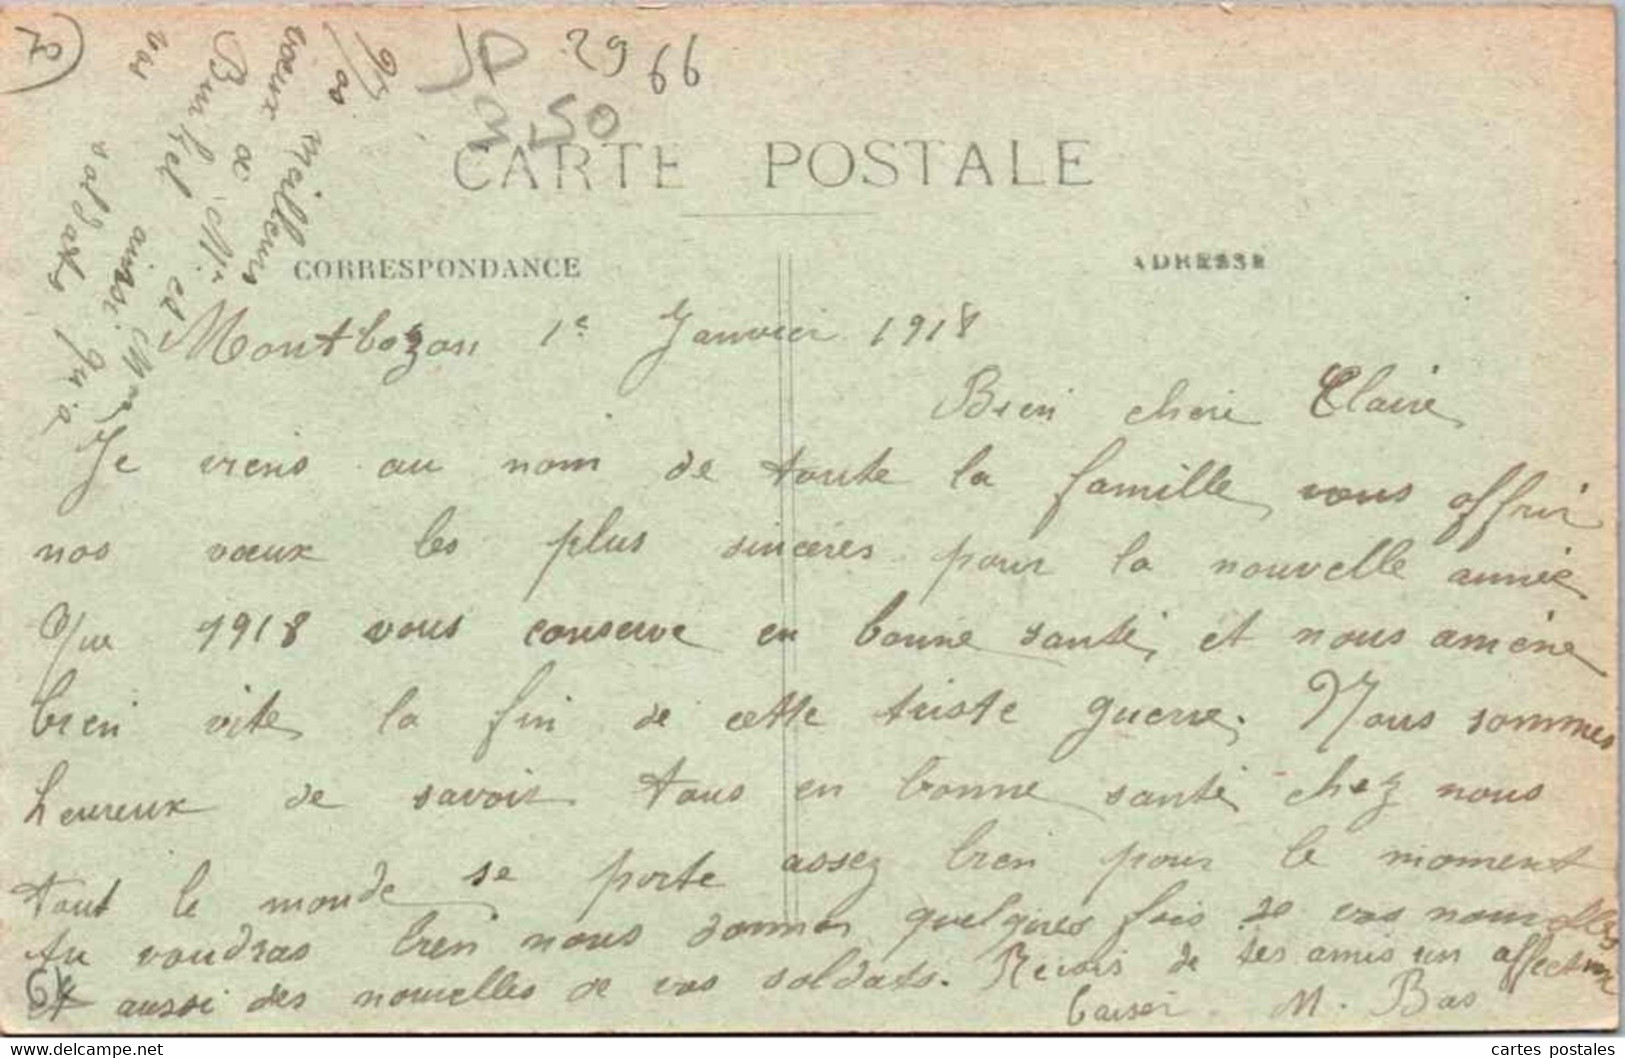 JP 2966
3,50
CARTE POSTALE
CORRESPONDANCE
ADRESSE
Montbozon 1e Janvier 1918
Bien chère Claire
Je viens au nom de toute la famille vous offrir
nos vœux les plus sincères pour la nouvelle année
Que 1918 vous conserve en bonne santé, et nous amène
bien vite la fin de cette triste guerre. Nous sommes
heureux de savoir tous en bonne santé chez nous
tout le monde se porte assez bien pour le moment
tu voudras bien nous donner quelques fois de vos nouvelles
et aussi des nouvelles de vos soldats. Reçois de tes amis un affectueux
baiser. M. Bas
Nos meilleurs
vœux à Mr et
ainsi qu'à
vos soldats
cartes postales